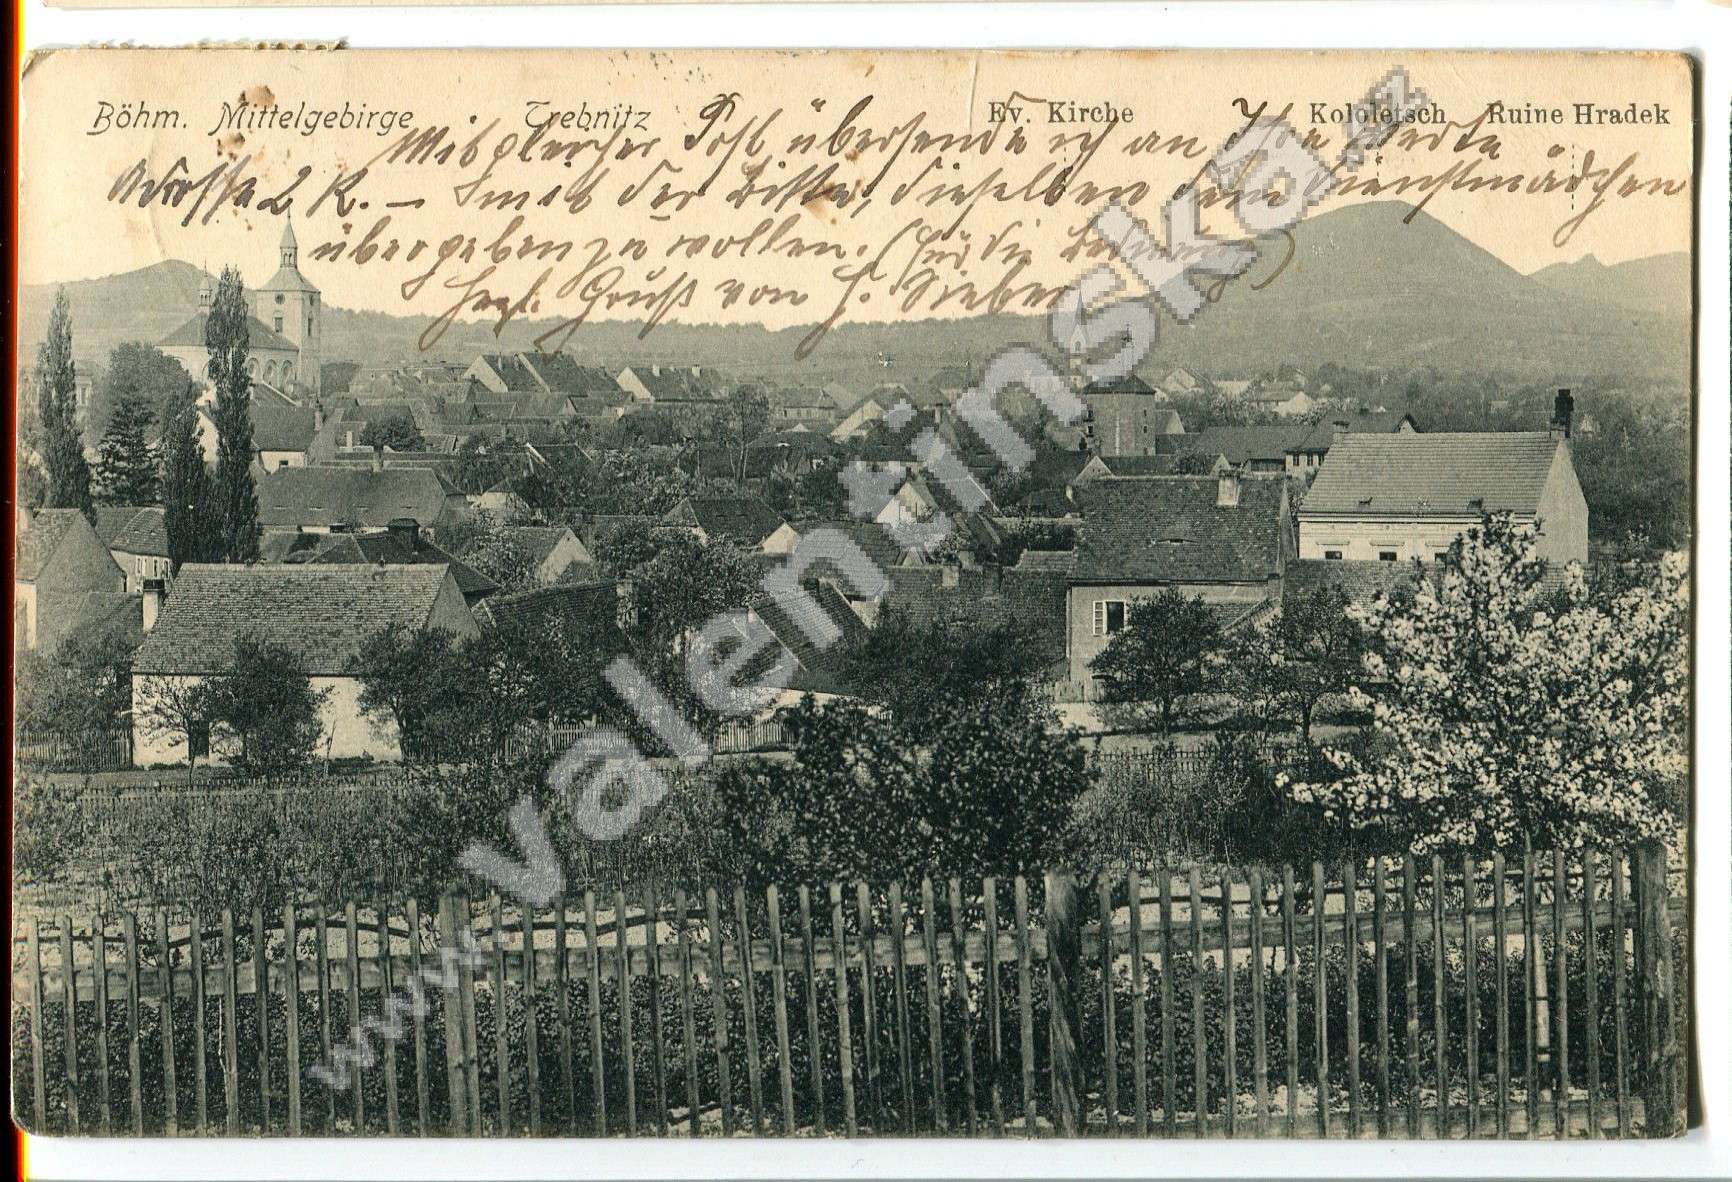 Böhm. Mittelgebirge Trebnitz Ev. Kirche Kololetsch Ruine Hradek
Mit gleicher Post übersende ich an Ihre werte
Adresse 2 K. – mit der Bitte, dieselben dem Dienstmädchen
übergeben zu wollen. (für die
Herzl. Gruß von H. Sieber
www.valentinska.cz